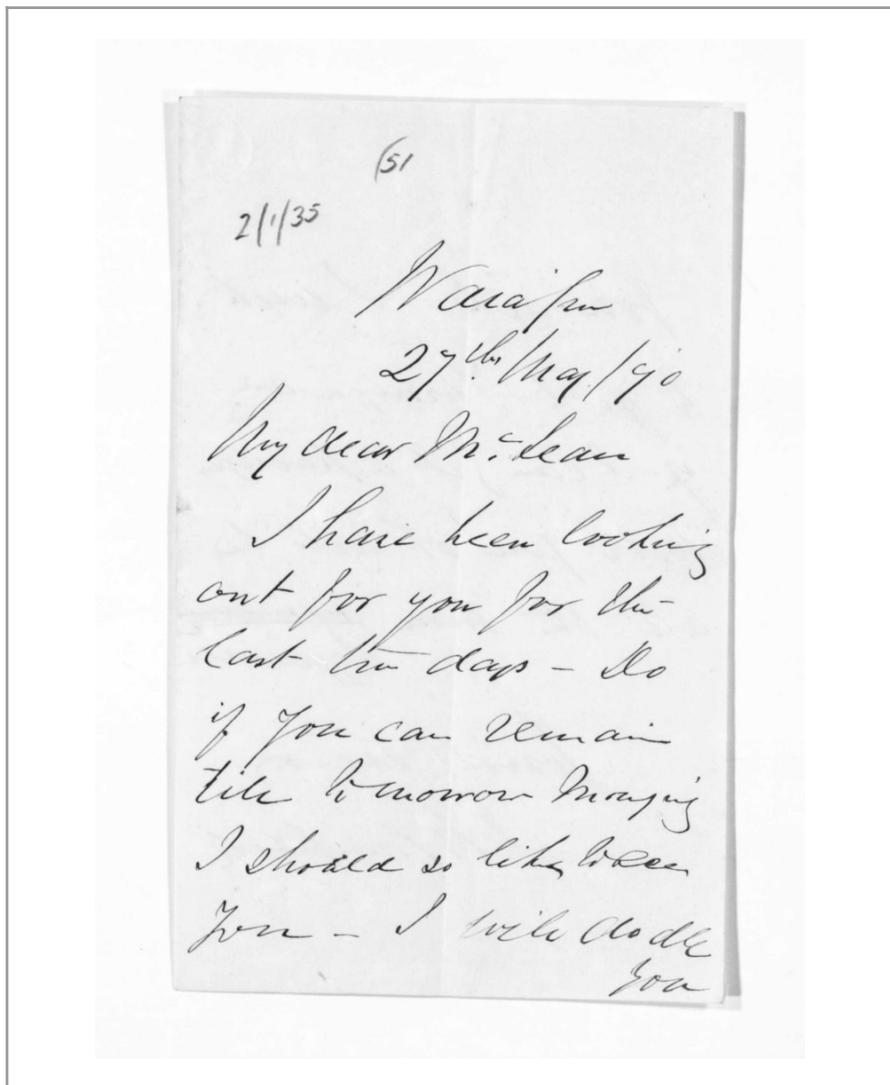 (51
2/1/35
27th May /70
My dear McLean
I have been looking
out for you for the
last two days - Do
if you can remain
till tomorrow morning
I should so like to see
you - I will
you